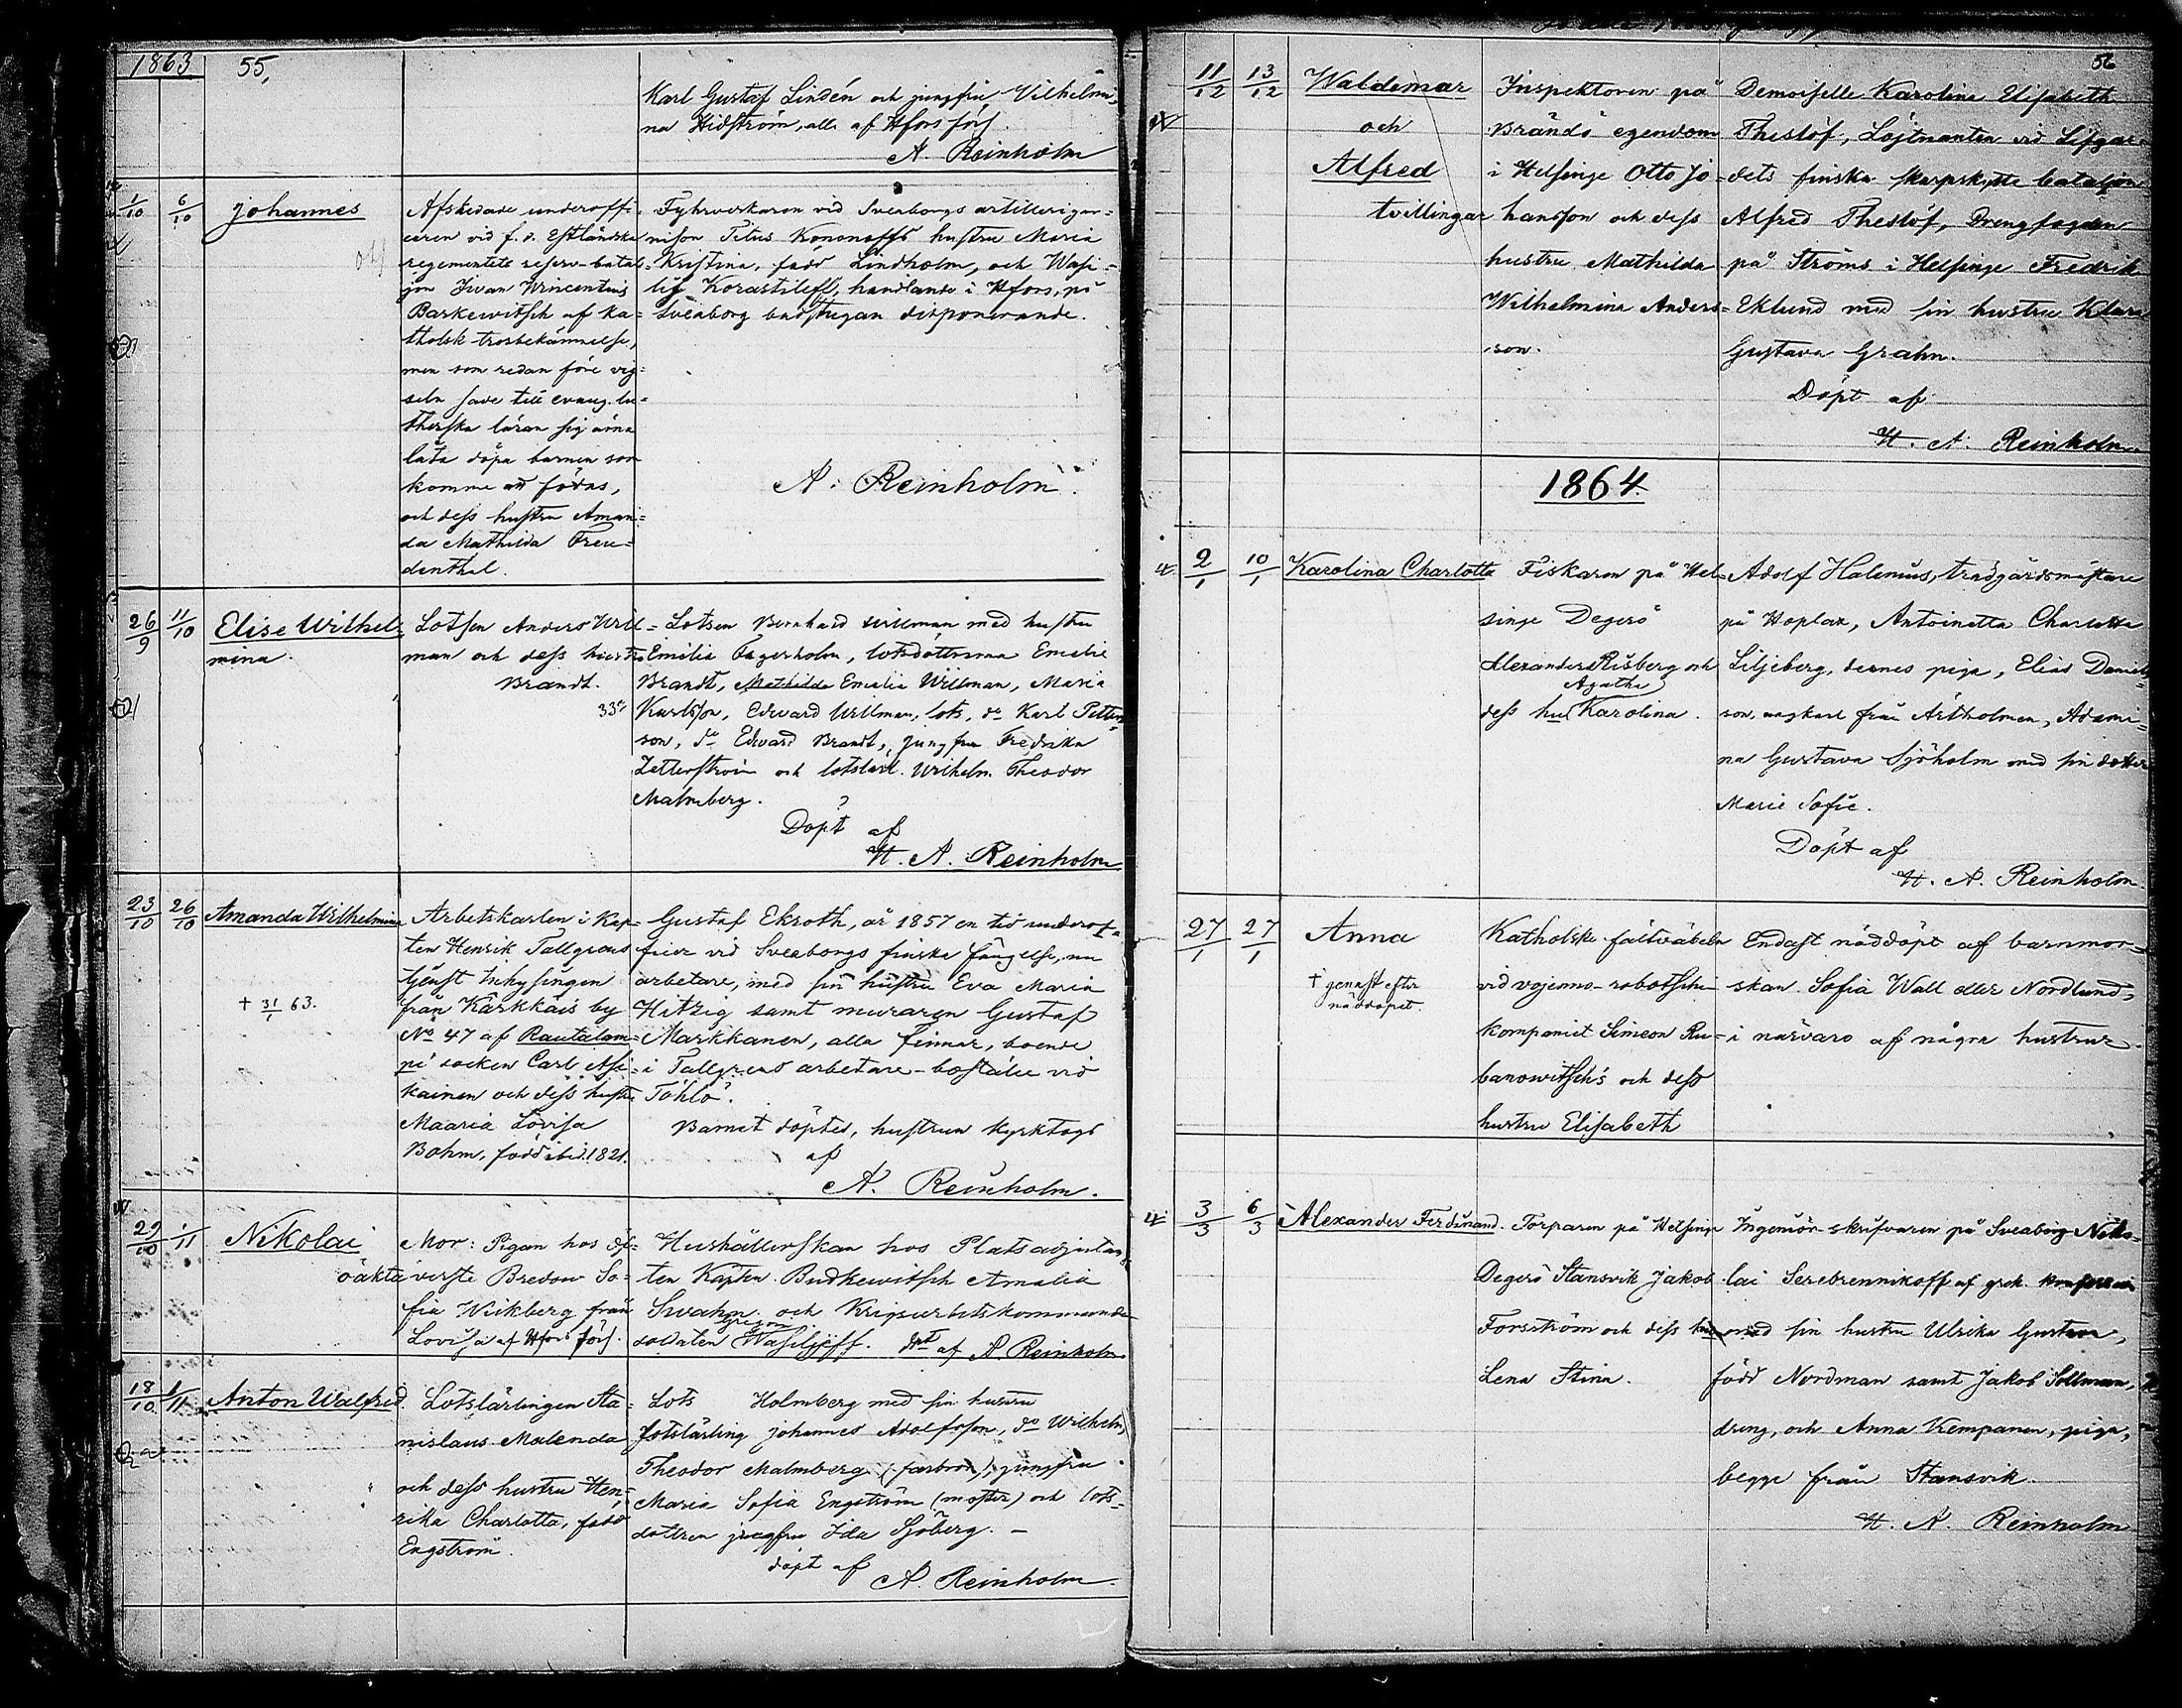 1863 55,
Karl Gustaf Lindén och jungfru Vilhelmi=
na Hidström, alla af Hfors förs.
A. Reinholm
1/10 6/10 Johannes
Afskedade underoffi=
ceren vid f. d. Estländska
regementets reserv-batal=
jon Iwan Wincentius
Barkewitsch af ka=
tholsk trosbekännelse,
men som redan före vig=
seln
till evang. lu=
therska läran sig ärna
låta döpa barnen som
komme att födas,
och dess hustru Aman=
da Mathilda Freu=
denthal.
Fyhrverkaren vid Sveaborgs artillerigar=
nison Titus Kononoffs hustru Maria
Kristina, född Lindholm, och Wasi=
lij handlande i Hfors, på
Sveaborg badstugan disponerande.
A. Reinholm.
26/9 11/10 Elise Wilhel=
mina.
Lotsen Anders Will=
man och dess hustru
Brandt.
33 år
Lotsen Bernhard Willman med hustru
Emilia Fagerholm, lotsdöttrarna Emelie
Brandt, Mathilda Emalia Willman, Maria
Karlsson, Edward Willman, lots, do Karl Petters=
son, do Edvard Brandt, jungfru Fredrika
Zetterström och lotslärl. Wilhelm Theodor
Malmberg.
Döpt af
H. A. Reinholm
23/10 26/10 Amanda Wilhelmina
† 31/1 63.
Arbetskarlen i Kap=
ten Henrik Tallgrens
tjenst Inhysingen
från Kärkkäis by
No 47 af Rautalam=
pi socken Carl Asi=
kainen och dess hustru
Maaria Lovisa
Bohm, född ibid. 1821.
Gustaf Ekroth, år 1857 en tid underof=
ficer vid Sveaborgs finska fängelse, nu
arbetare, med sin hustru Eva Maria
Hitzig samt muraren Gustaf
Markkanen, alla finnar, boende
i Tallgrens arbetare-boställe vid
Töhlö.
Barnet döptes, hustrun kyrktogs
af
A. Reinholm.
29/10 1/11 Nikolai
oäkta
Mor: Pigan hos öf=
verste Bredow So=
fia Wikberg från
Lovisa af Hfors förs.
Hushållerskan hos Platsadjutan=
ten Kapten Budkewitsch Amalia
Swahn och Krigsarbetskommando
soldaten Wasiljeff. dpt af A. Reinholm
18/10 1/11 Anton Walfred
Lotslärlingen Sta=
nislaus Malenda
och dess hustru Hen=
rika Charlotta, född
Engström.
Lots Holmberg med sin hustru
Lotslärling Johannes Adolfsson, do Wilhelm
Theodor Malmberg (farbror), jungfru
Maria Sofia Engström (moster) och lots=
dottren jungfru Ida Sjöberg. —
döpt af
A. Reinholm
56
11/12 13/12 Waldemar
och
Alfred
tvillingar
Inspektoren på
Brändö egendom
i Helsinge Otto Jo=
hansson och dess
hustru Mathilda
Wilhelmina Anders=
son.
Demoiselle Karolina Elisabeth
Theslöf, Löjtnanten vid Lifgar=
dets finska skarpskytte bataljon
Alfred Theslöf, Drengfogden
på Ströms i Helsinge Fredrik
Eklund med sin hustru Klara
Gustava Grahn.
Döpt af
H. A. Reinholm
1864.
2/1 10/1 Karolina Charlotta
Fiskaren på Hel=
singe Degerö
Alexander Risberg och
Agatha
dess hu Karolina.
Adolf Halenius, trädgårdsmästare
på Hoplax, Antoinetta Charlotta
Liljeberg, dennes piga, Elias Daniels=
son, ungkarl från Ärtholmen, Adami=
na Gustava Sjöholm med sin dotter
Marie Sofie.
Döpt af
H. A. Reinholm.
27/1 27/1 Anna
† genast efter
nöddopet.
Katholska fältväbeln
vid vojenno-rabotschi-
kompaniet Simeon Ru=
banowitsch's och dess
hustru Elisabeth
Endast nöddöpt af barnmor=
skan Sofia Wall eller Nordlund,
i närvaro af några hustrur.
3/3 6/3 Alexander Ferdinand.
Torparen på Helsinge
Degerö Stansvik Jakob
Forsström och dess hu
Lena Stina.
Ingeniör-skrifvaren på Sveaborg Niko=
lai Serebrennikoff af grek. konfession
med sin hustru Ulrika Gustava,
född Nordman samt Jakob Sollman,
dreng, och Anna Kempanen, piga,
begge från Stansvik.
H. A. Reinholm